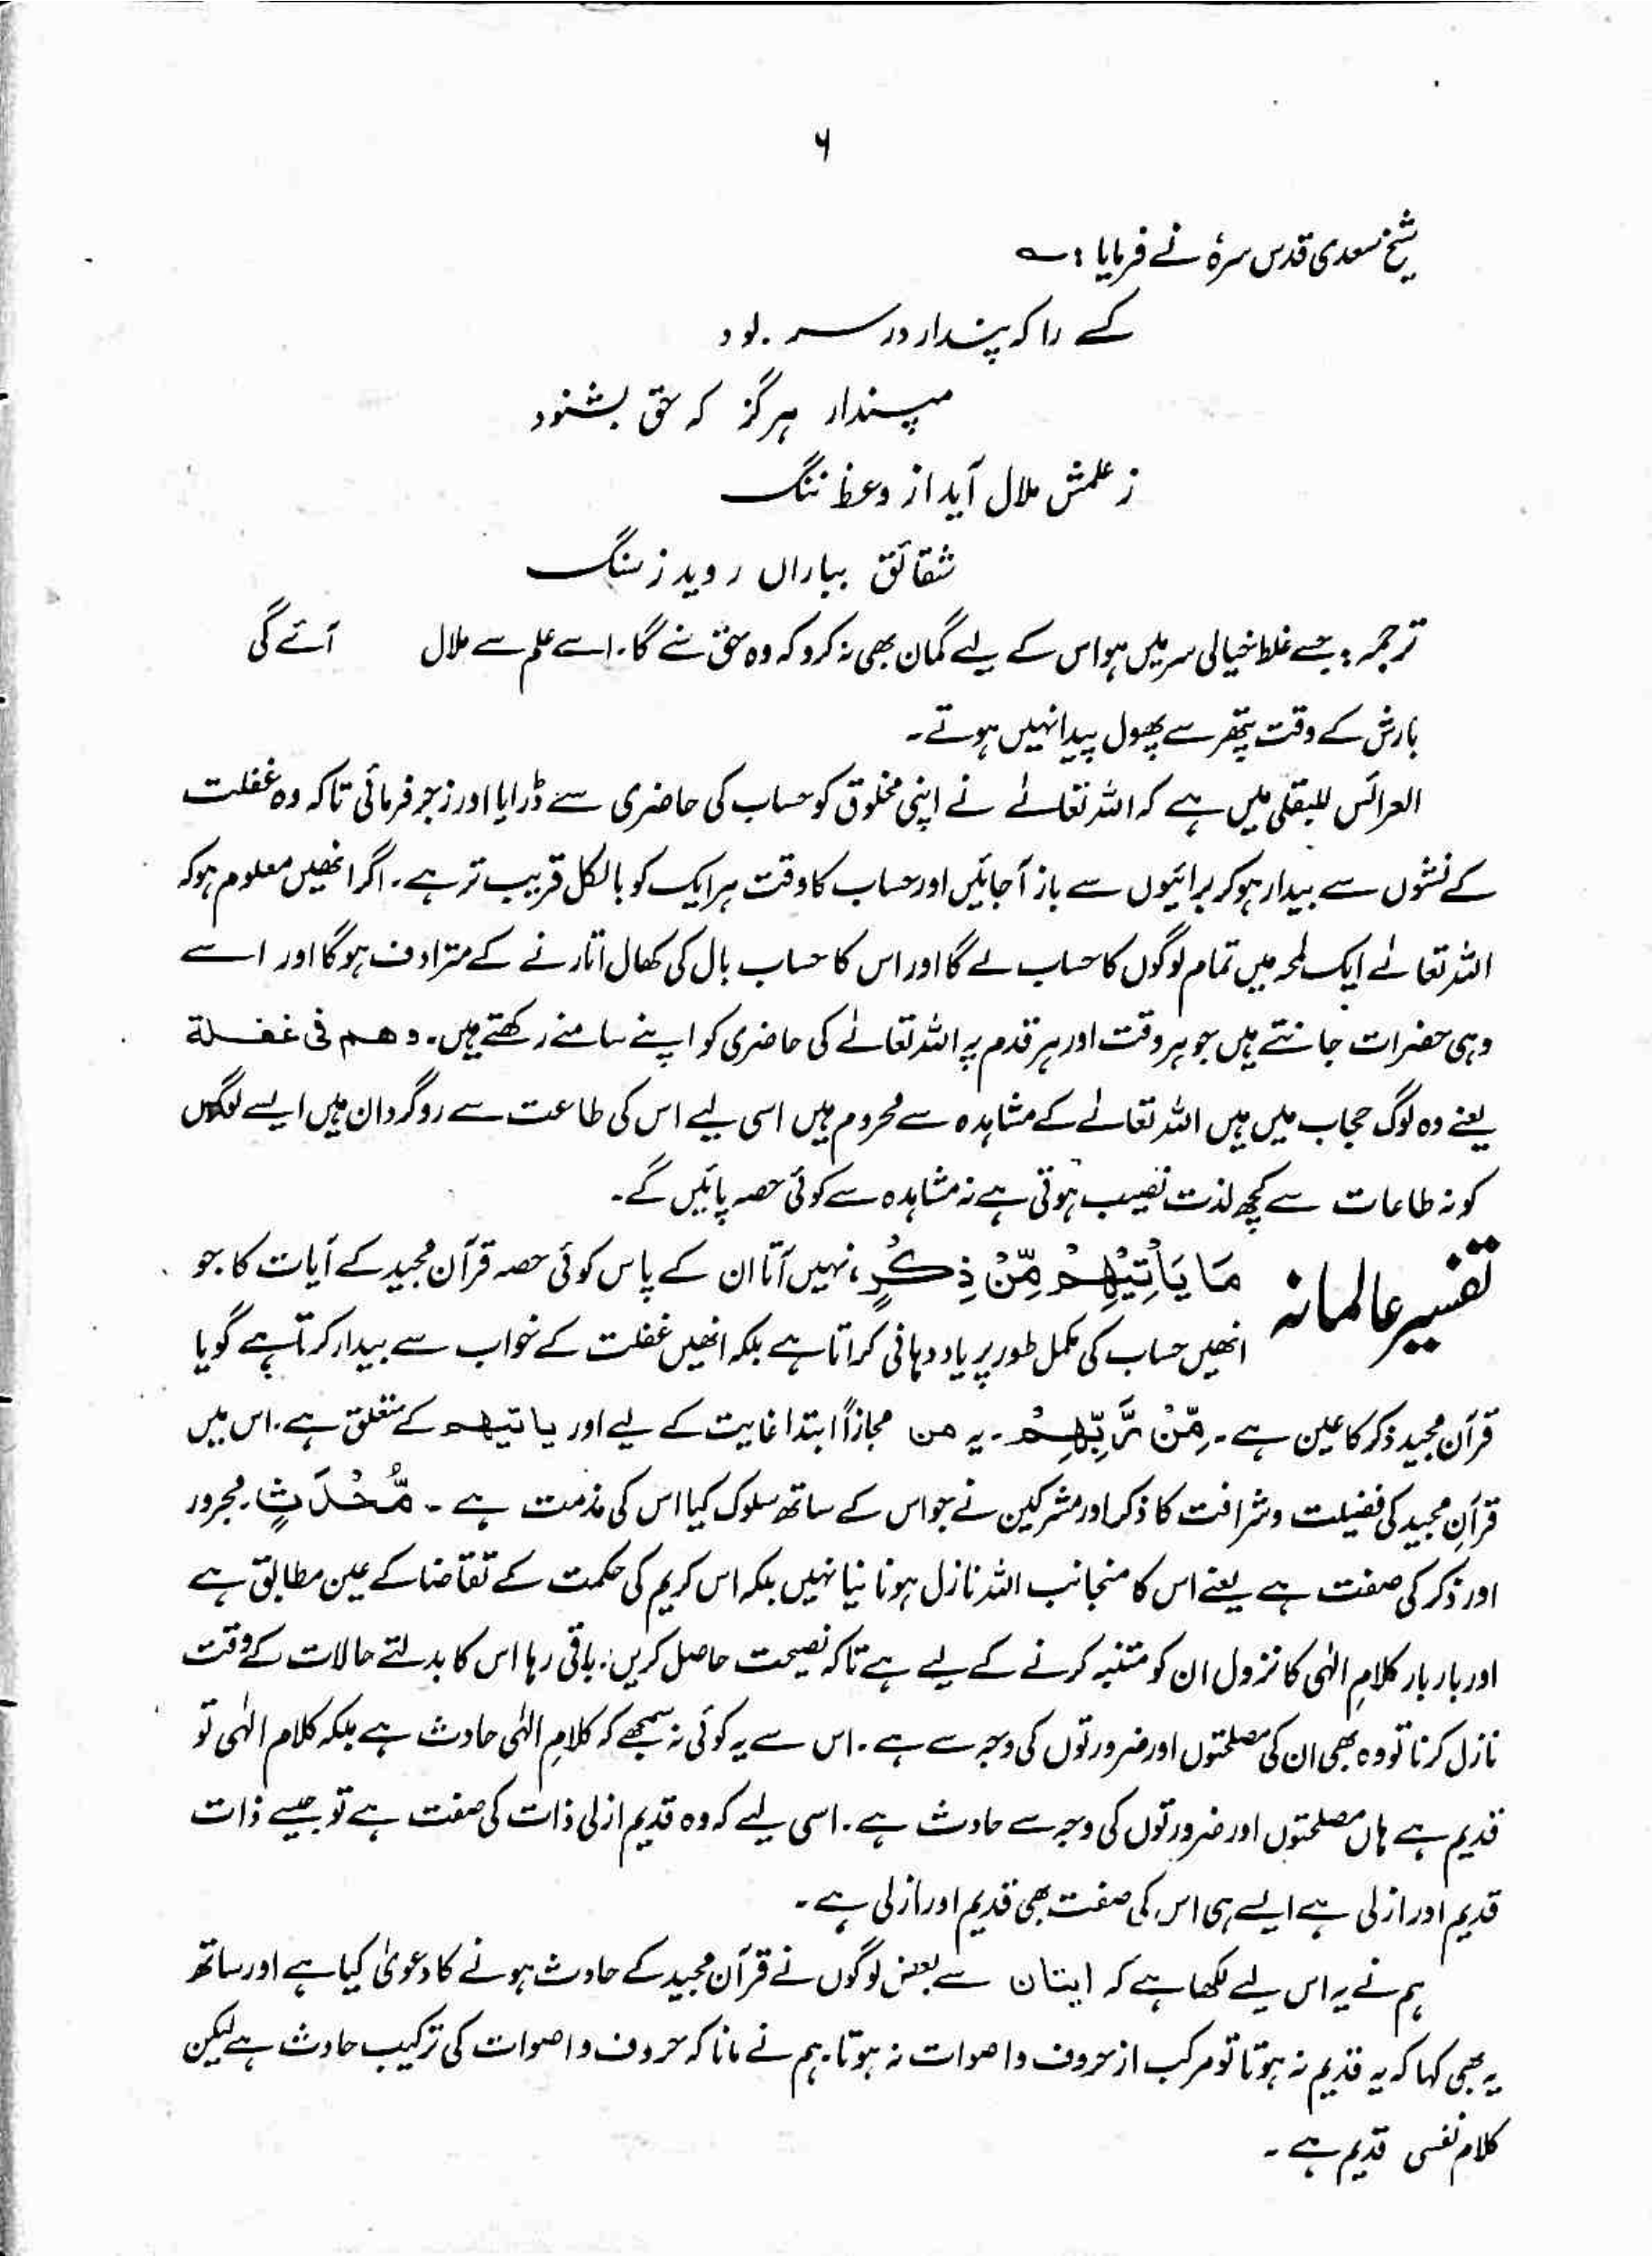 ۶
شیخ سعدی قدس سرہٗ نے فرمایا : ؎
کسے را کہ پندار در سر بود
مپندار ہرگز کہ حق بشنود
ز علمش ملال آید از وعظ ننگ
شقائق بباراں روید ز سنگ
ترجمہ : جسے غلط خیالی سر میں ہو اس کے لیے گمان بھی نہ کرو کہ وہ حق سنے گا۔ اسے علم سے ملال آئے گی
بارش کے وقت پتھر سے پھول پیدا نہیں ہوتے۔
العرائس للبقلی میں ہے کہ اللہ تعالٰے نے اپنی مخلوق کو حساب کی حاضری سے ڈرایا اور زجر فرمائی تاکہ وہ غفلت
کے نشوں سے بیدار ہو کر برائیوں سے باز آجائیں اور حساب کا وقت ہر ایک کو بالکل قریب تر ہے۔ اگر انھیں معلوم ہو کہ
اللہ تعالٰے ایک لمحہ میں تمام لوگوں کا حساب لے گا اور اس کا حساب بال کی کھال اتارنے کے مترادف ہوگا اور اسے
وہی حضرات جانتے ہیں جو ہر وقت اور ہر قدم پر اللہ تعالٰے کی حاضری کو اپنے سامنے رکھتے ہیں۔ وھم فی غفلة
یعنے وہ لوگ حجاب میں ہیں اللہ تعالٰے کے مشاہدہ سے محروم ہیں اسی لیے اس کی طاعت سے روگردان ہیں ایسے لوگوں
کو نہ طاعات سے کچھ لذت نصیب ہوتی ہے نہ مشاہدہ سے کوئی حصہ پائیں گے۔
تفسیر عالمانہ مَا یَاْتِیْھِمْ مِّنْ ذِکْرٍ، نہیں آتا ان کے پاس کوئی حصہ قرآن مجید کے آیات کا جو
انھیں حساب کی مکمل طور پر یاد دہانی کراتا ہے بلکہ انھیں غفلت کے خواب سے بیدار کرتا ہے گویا
قرآن مجید ذکر کا عین ہے۔ مِّنْ رَّبِّھِمْ ۔ یہ من مجازاً ابتدا غایت کے لیے اور یاتیھم کے متعلق ہے۔ اس میں
قرآنِ مجید کی فضیلت و شرافت کا ذکر اور مشرکین نے جو اس کے ساتھ سلوک کیا اس کی مذمت ہے ۔ مُّحْدَثٍ۔ مجرور
اور ذکر کی صفت ہے یعنے اس کا منجانب اللہ نازل ہونا نیا نہیں بلکہ اس کریم کی حکمت کے تقاضا کے عین مطابق ہے
اور بار بار کلامِ الٰہی کا نزول ان کو متنبہ کرنے کے لیے ہے تاکہ نصیحت حاصل کریں۔ باقی رہا اس کا بدلتے حالات کے وقت
نازل کرنا تو وہ بھی ان کی مصلحتوں اور ضرورتوں کی وجہ سے ہے۔ اس سے یہ کوئی نہ سمجھے کہ کلامِ الٰہی حادث ہے بلکہ کلام الٰہی تو
قدیم ہے ہاں مصلحتوں اور ضرورتوں کی وجہ سے حادث ہے۔ اسی لیے کہ وہ قدیم ازلی ذات کی صفت ہے تو جیسے ذات
قدیم اور ازلی ہے ایسے ہی اس کی صفت بھی قدیم اور ازلی ہے۔
ہم نے یہ اس لیے لکھا ہے کہ سے بعض لوگوں نے قرآن مجید کے حادث ہونے کا دعویٰ کیا ہے اور ساتھ
یہ بھی کہا کہ یہ قدیم نہ ہوتا تو مرکب از حروف و اصوات نہ ہوتا۔ ہم نے مانا کہ حروف و اصوات کی ترکیب حادث ہے لیکن
کلام نفسی قدیم ہے ۔